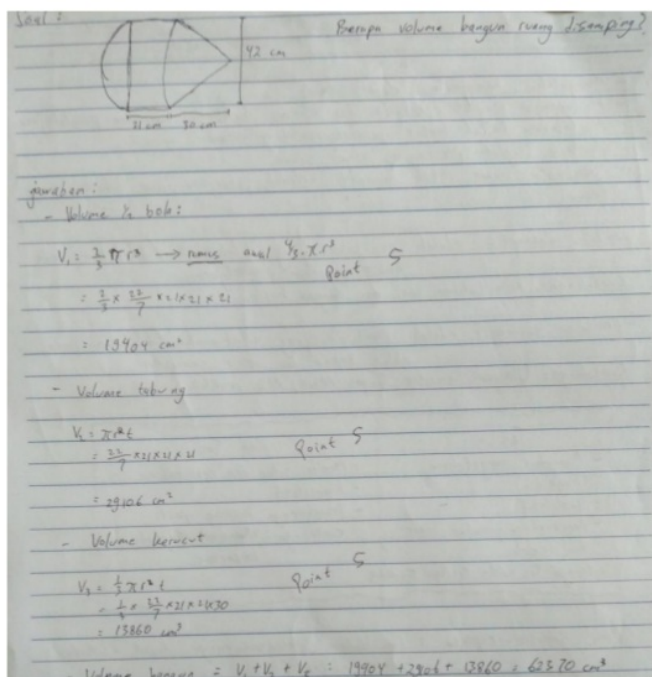 Soal :
Berapa volume bangun ruang disamping?
42 cm
21 cm 30 cm
jawaban :
- Volume ½ bola :
V₁ = 2/3 π r³ → rumus awal 4/3 . π . r³
Point 5
= 2/3 × 22/7 × 21 × 21 × 21
= 19404 cm³
- Volume tabung
V₂ = π r² t
Point 5
= 22/7 × 21 × 21 × 21
= 29106 cm³
- Volume kerucut
V₃ = 1/3 π r² t
Point 5
= 1/3 × 22/7 × 21 × 21 × 30
= 13860 cm³
- Volume bangun = V₁ + V₂ + V₃ : 19904 + 2906 + 13860 = 62370 cm³